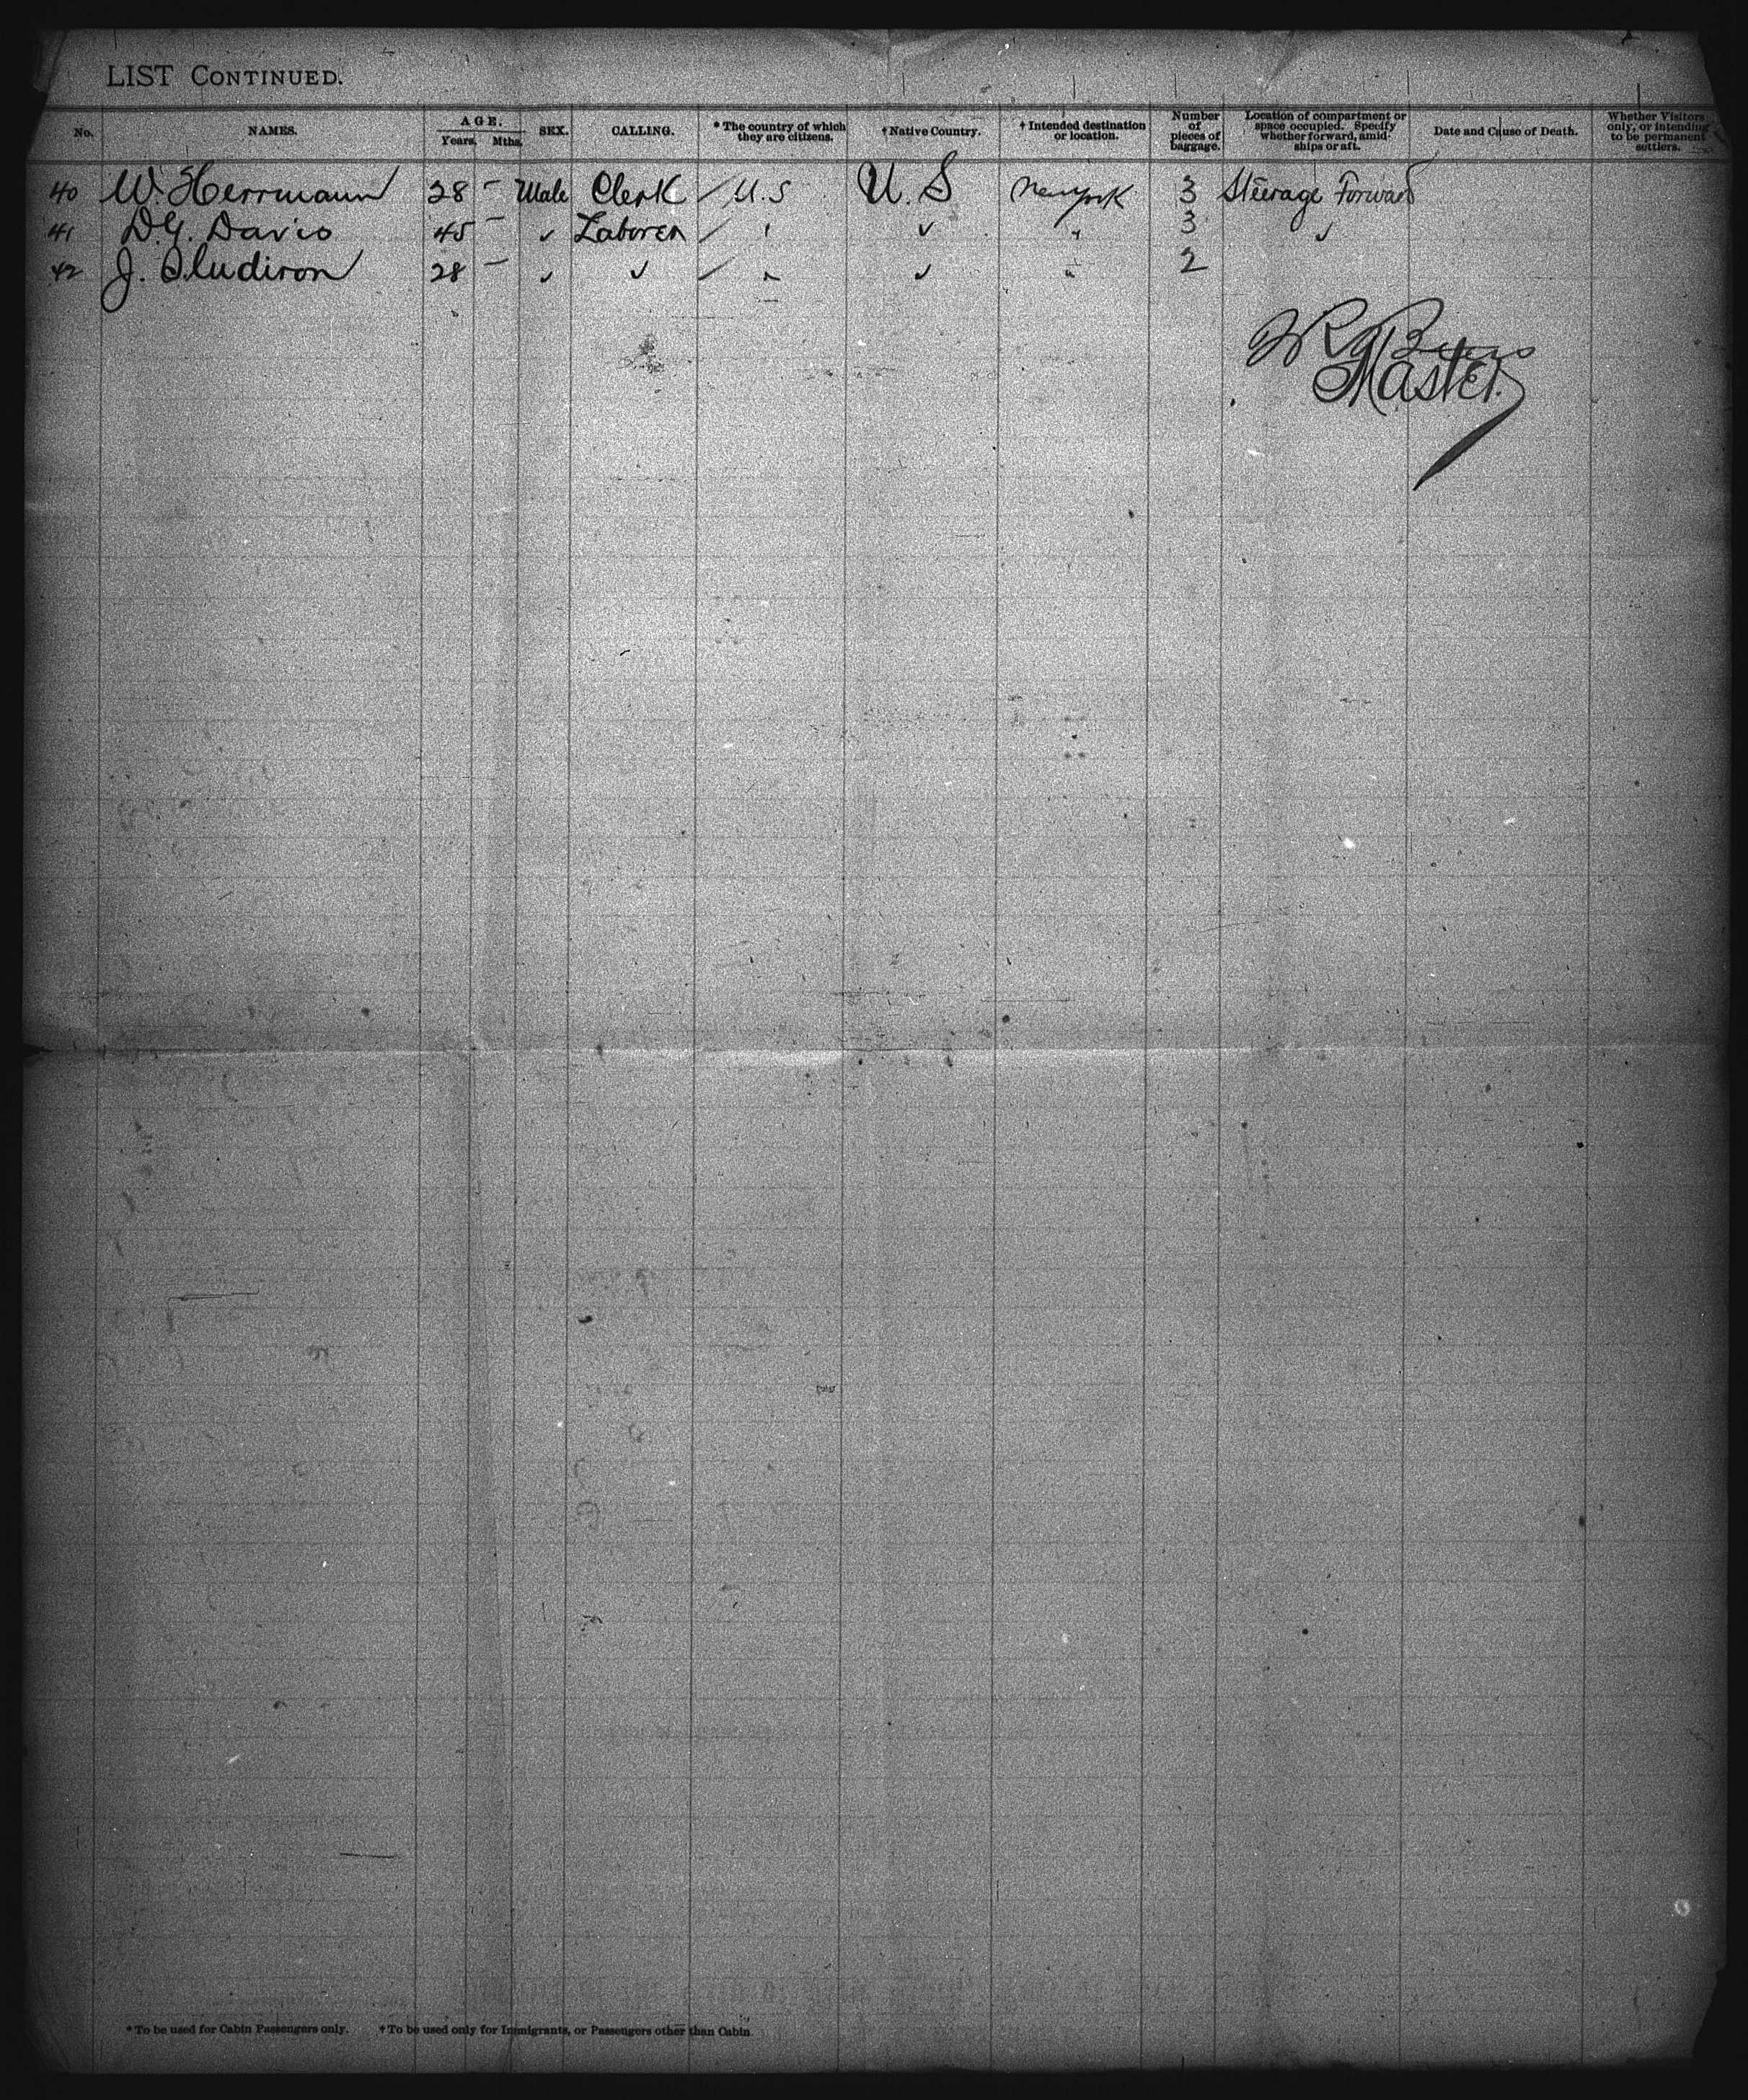 LIST CONTINUED.
No. NAMES. AGE. Years. Mths. SEX. CALLING. * The country of which they are citizens. † Native Country. † Intended destination or location. Number of pieces of baggage. Location of compartment or space occupied. Specify whether forward, amidships or aft. Date and Cause of Death. Whether Visitors only, or intending to be permanent settlers.
40 W. Herrmann 28 - Male Clerk / U.S U.S New York 3 Steerage Forward
41 D.G. Davis 45 - ✓ Laborer / " ✓ " 3 ✓
42 J. 28 - ✓ ✓ / " ✓ " 2
Master.
* To be used for Cabin Passengers only. † To be used only for Immigrants, or Passengers other than Cabin.